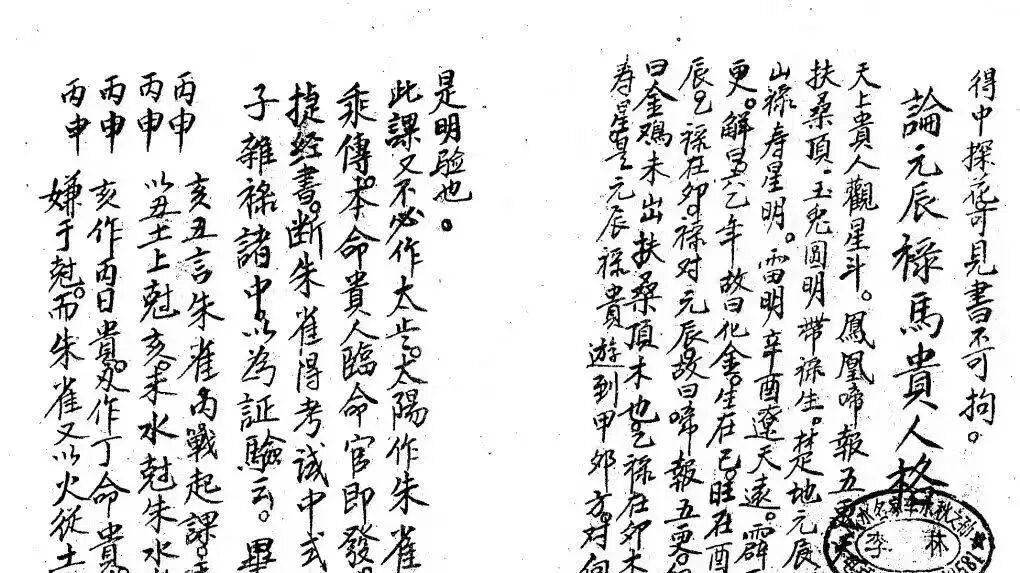 得中探花可見書不可拘。
論元辰祿馬貴人格
天上貴人觀星斗。鳳凰啼報五更
扶桑頂。玉兔圓明帶祿生。楚地元辰
山祿壽星明。雷明辛酉遼天遠。霹
更。解曰。乙年故曰化金。生在巳。旺在酉
辰。乙祿在卯。祿对元辰。故曰啼報五更。
曰金鷄未出扶桑頂木也。乙祿在卯木
寿星是元辰祿貴遊到甲卯方。对向
李林
是明驗也。
此課又不必作太歩。太陽作朱雀
乘傳。本命貴人臨命官即發
捷経書。断朱雀得考試中式
子雜祿諸中。以為証驗云。畢
丙申 亥丑言朱雀内戰起課。
丙申 以丑土上尅亥。未水尅朱水
丙申 亥作丙日貴。又作丁命貴
丙申 嫌于尅。而朱雀又以火從土